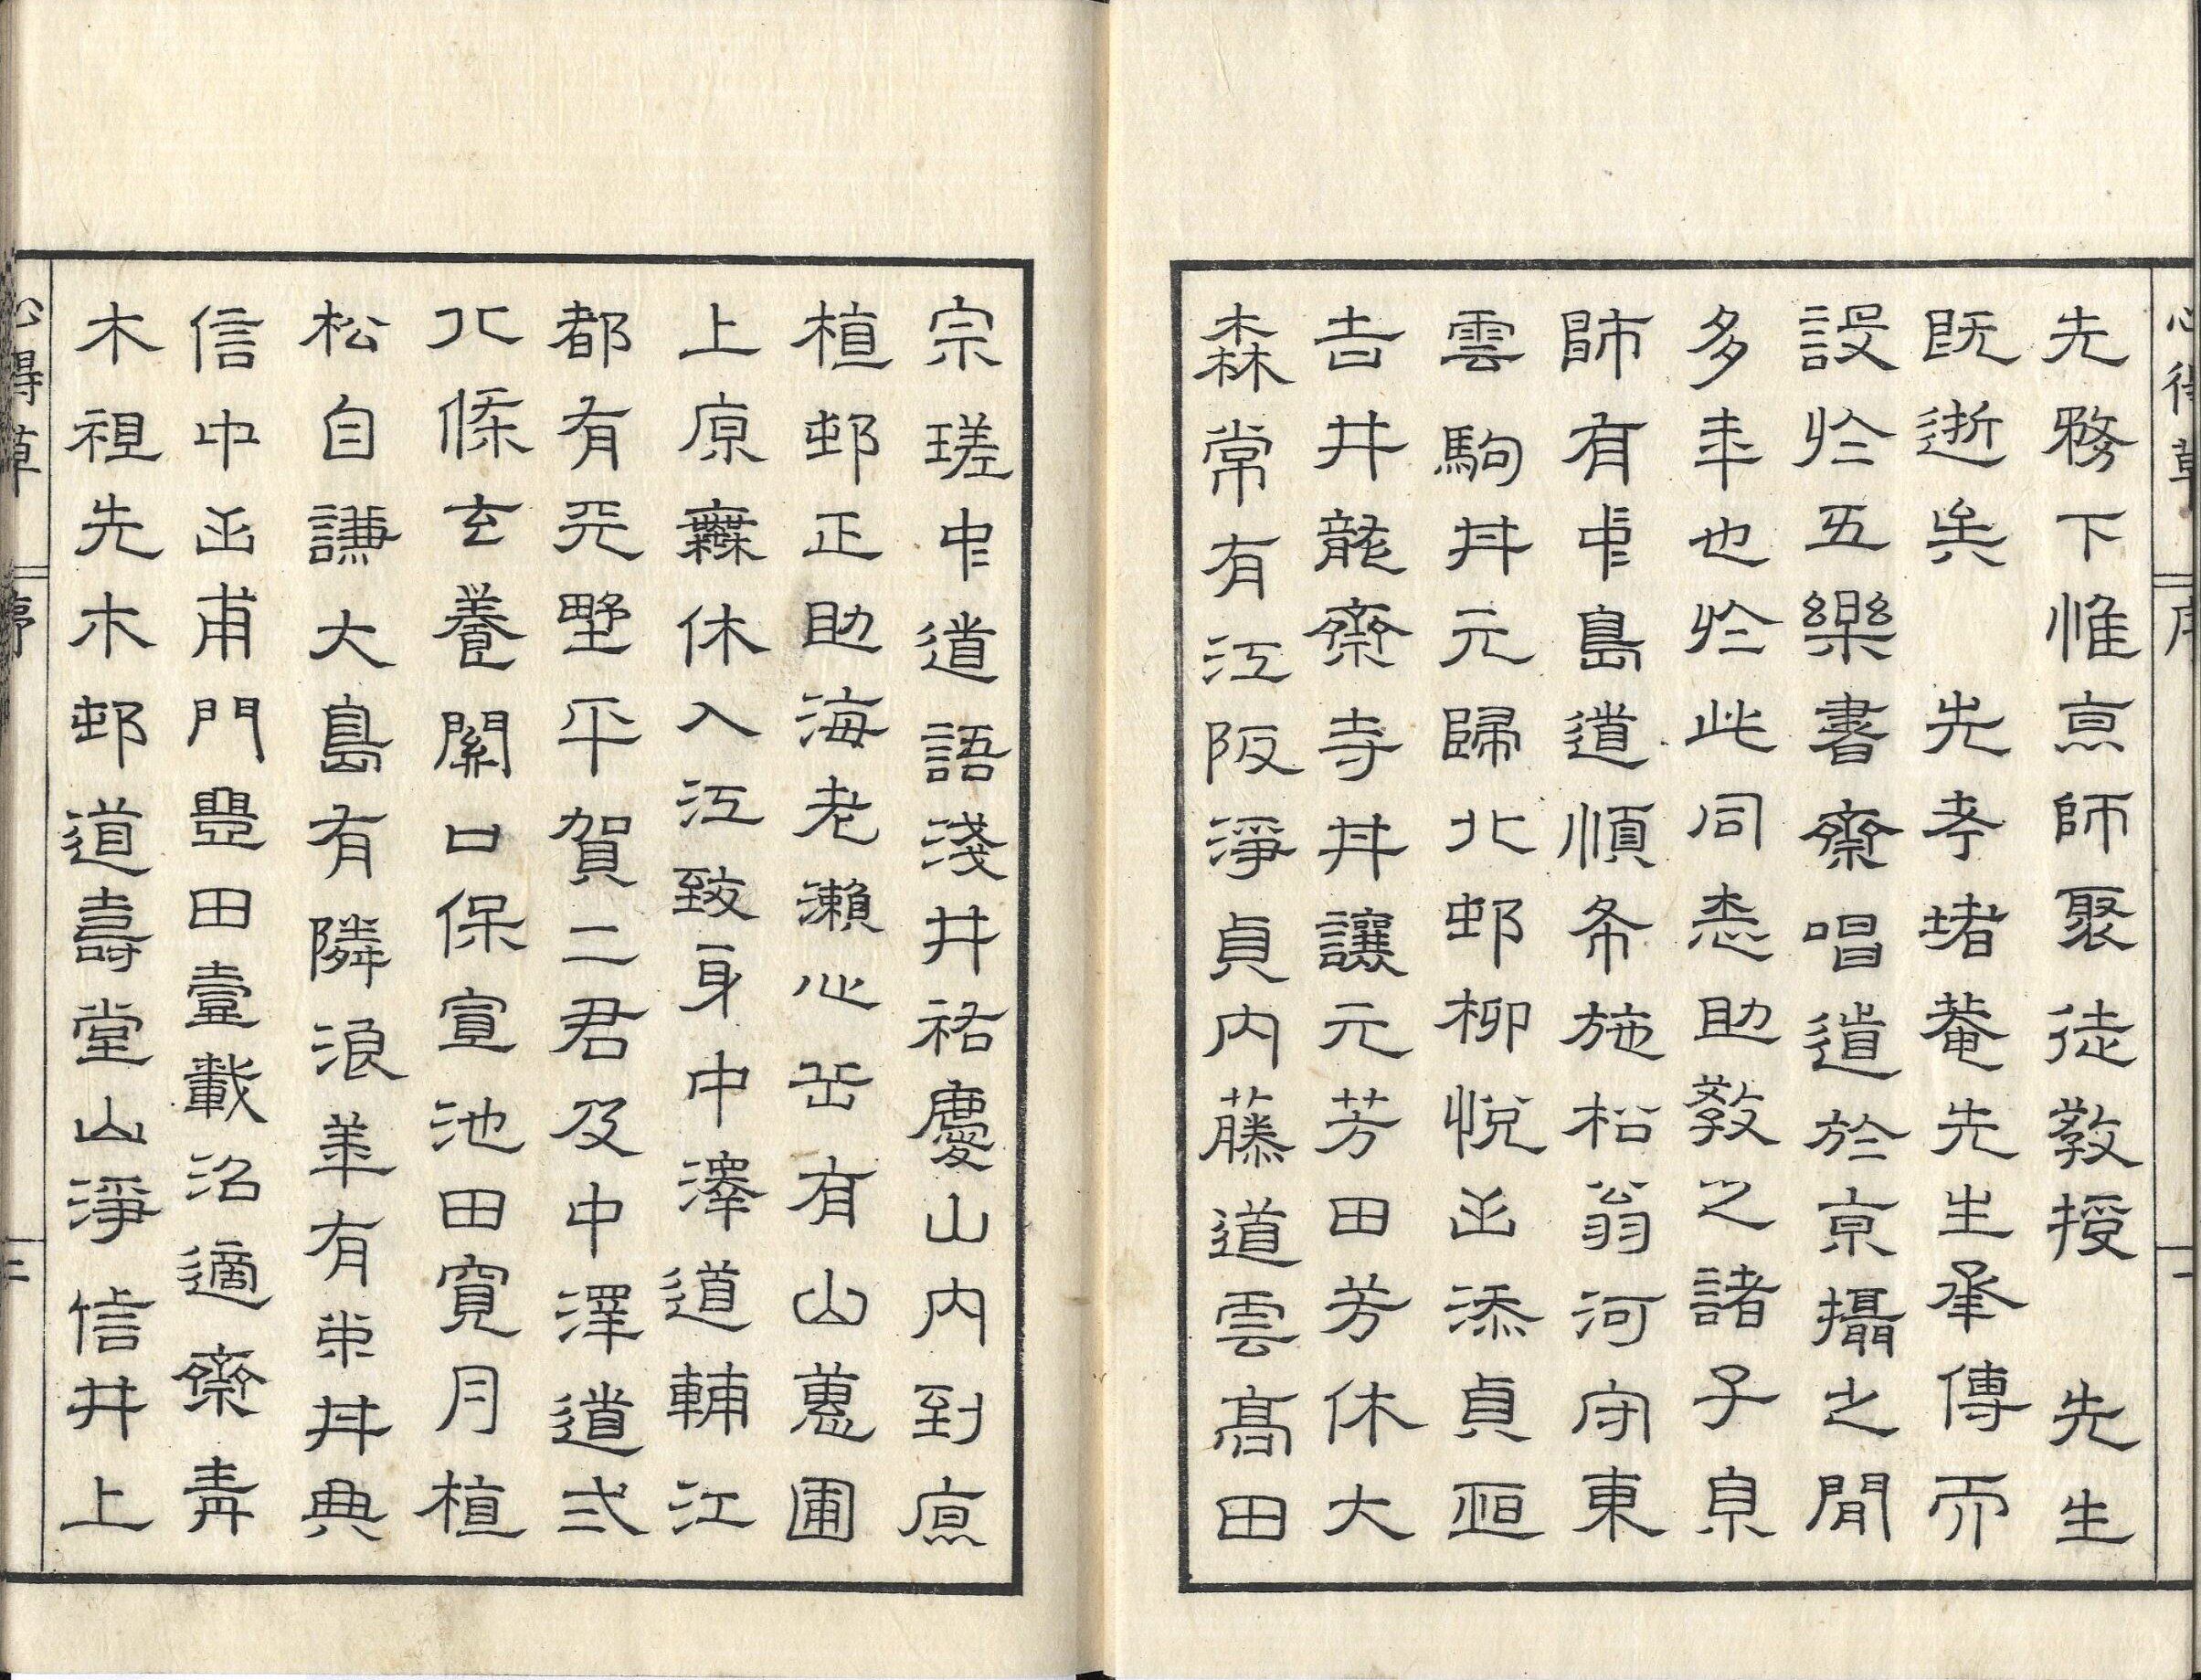 先務下惟京師聚徒敎授　先生
旣逝矣　先考堵菴先生承傳而
設於五樂書齋唱道於京攝之閒
多年也於此同志助敎之諸子京
師有中島道順希施松翁河守東
雲駒井元歸北邨柳悅西添貞恒
吉井龍齋寺井讓元芳田芳休大
森常有江阪淨貞内藤道雲高田
宗瑳中道語淺井祐慶山内到原
植邨正助海老瀬心岳有山蕙圃
上原霖休入江致身中澤道輔江
都有元野平賀二君及中澤道弍
八條玄養關口保宣池田寬月植
松自謙大島有隣浪華有栄井典
信中西甫門豊田臺載沼適齋靑
木祖先木邨道壽堂山淨信井上
心得草　序　二
心得草　序　三